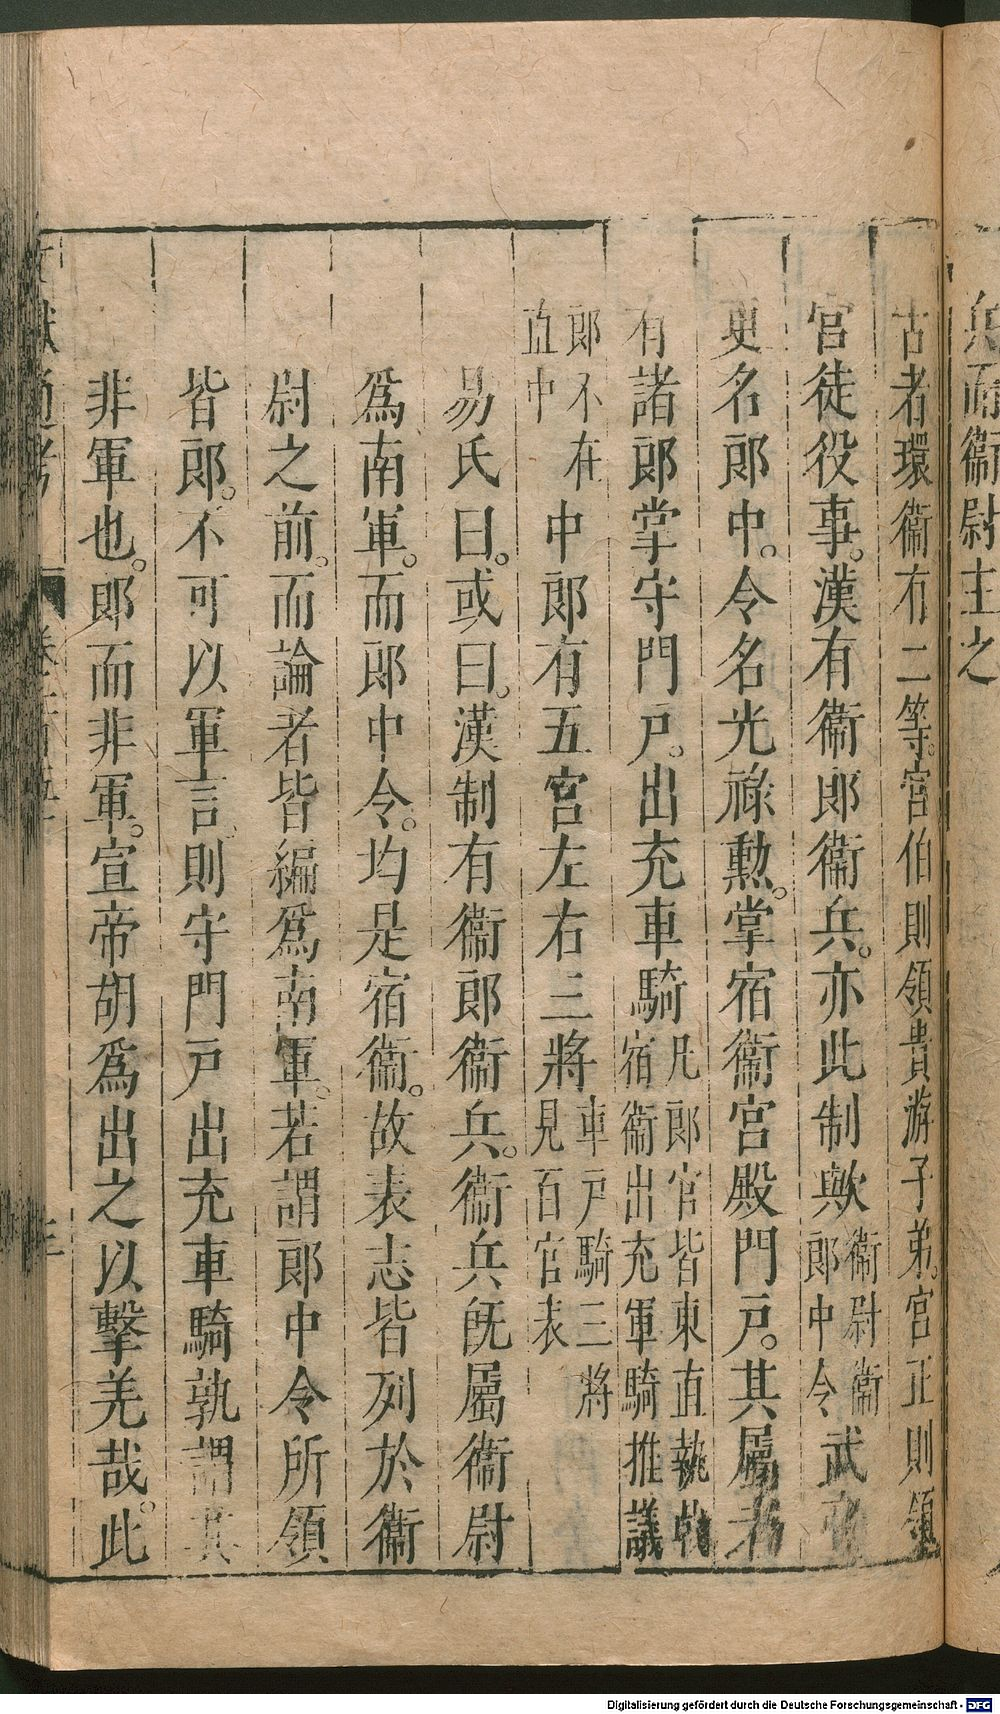 兵而衞尉主之
古者環衞有二等。宮伯則領貴游子弟。宮正則領
宮徒役事。漢有衞郎衞兵。亦此制歟衞尉衞郎中令武帝
更名郎中。令名光祿勲。掌宿衞宮殿門戸。其屬者
有諸郎掌守門戸。出充車騎凡郎官皆東直執戟宿衞出充軍騎推議
郎不在直中中郎有五宮左右三將車戸騎三將見百官表
易氏曰。或曰。漢制有衞郎衞兵。衞兵旣屬衞尉
爲南軍。而郎中令。均是宿衞。故表志皆列於衞
尉之前。而論者皆編爲南軍。若謂郎中令所領
皆郎。不可以軍言。則守門戸出充車騎孰謂其
非軍也。郎而非軍。宣帝胡爲出之以擊羌哉。此
文獻通考
Digitalisierung gefördert durch die Deutsche Forschungsgemeinschaft - DFG